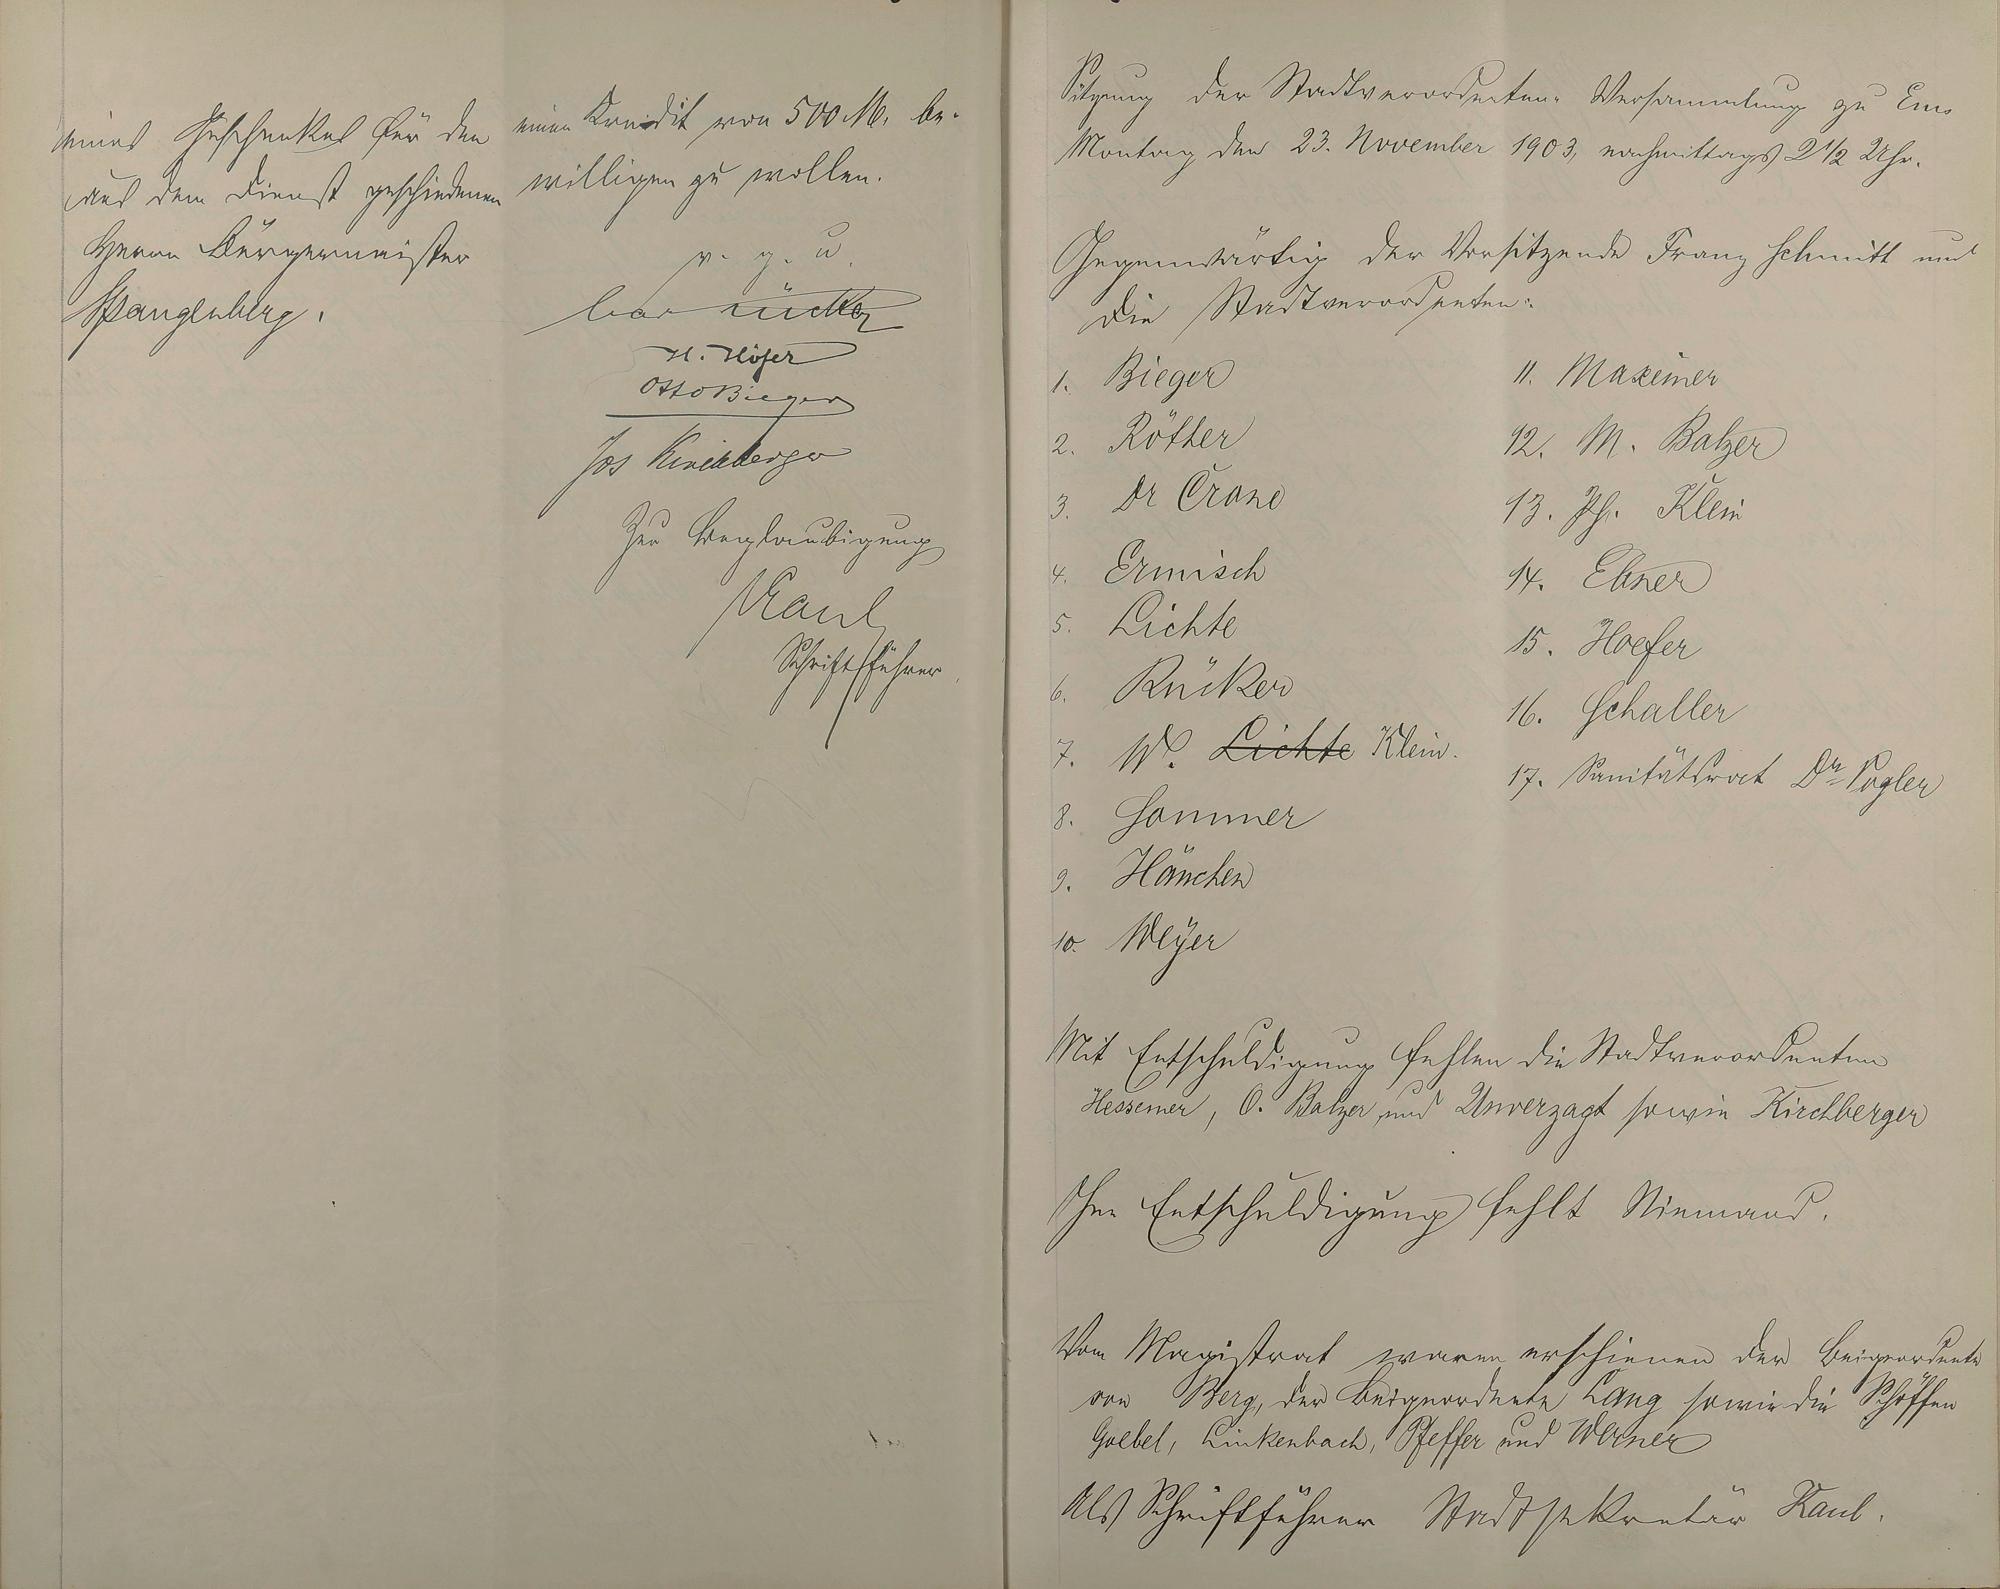 eines Geschenkes für den
aus dem Dienst geschiedenen
Herrn Bürgermeister
Spangenberg.
einen Kredit von 500 M. be-
willigen zu wollen.
v. g. u.
Rücker
H. Höfer
Otto Bieger
Jos Kirchberger
Zur Beglaubigung
Kaul
Schriftführer
Sitzung der Stadtverordneten-Versammlung zu Ems
Montag den 23. November 1903, nachmittags 2 1/2 Uhr.
Gegenwärtig der Vorsitzende Franz Schmitt und
die Stadtverordneten:
1. Bieger
2. Rötter
3. Dr Crone
4. Ermisch
5. Lichte
6. Rücker
7. W. Lichte Klein.
8. Sommer
9. Hänchen
10. Weyer
11. Maxeiner
12. M. Balzer
13. Ph. Klein
14. Ebner
15. Hoefer
16. Schaller
17. Sanitätsrat Dr. Vogler
Mit Entschuldigung fehlen die Stadtverordneten
Hessemer, O. Balzer und Unverzagt sowie Kirchberger
Ohne Entschuldigung fehlt Niemand.
Vom Magistrat waren erschienen der Beigeordnete
von Berg, der Beigeordnete Lang sowie die Schöffen
Goebel, Linkenbach, Pfeffer und Werner
Als Schriftführer Stadtsekretär Kaul.